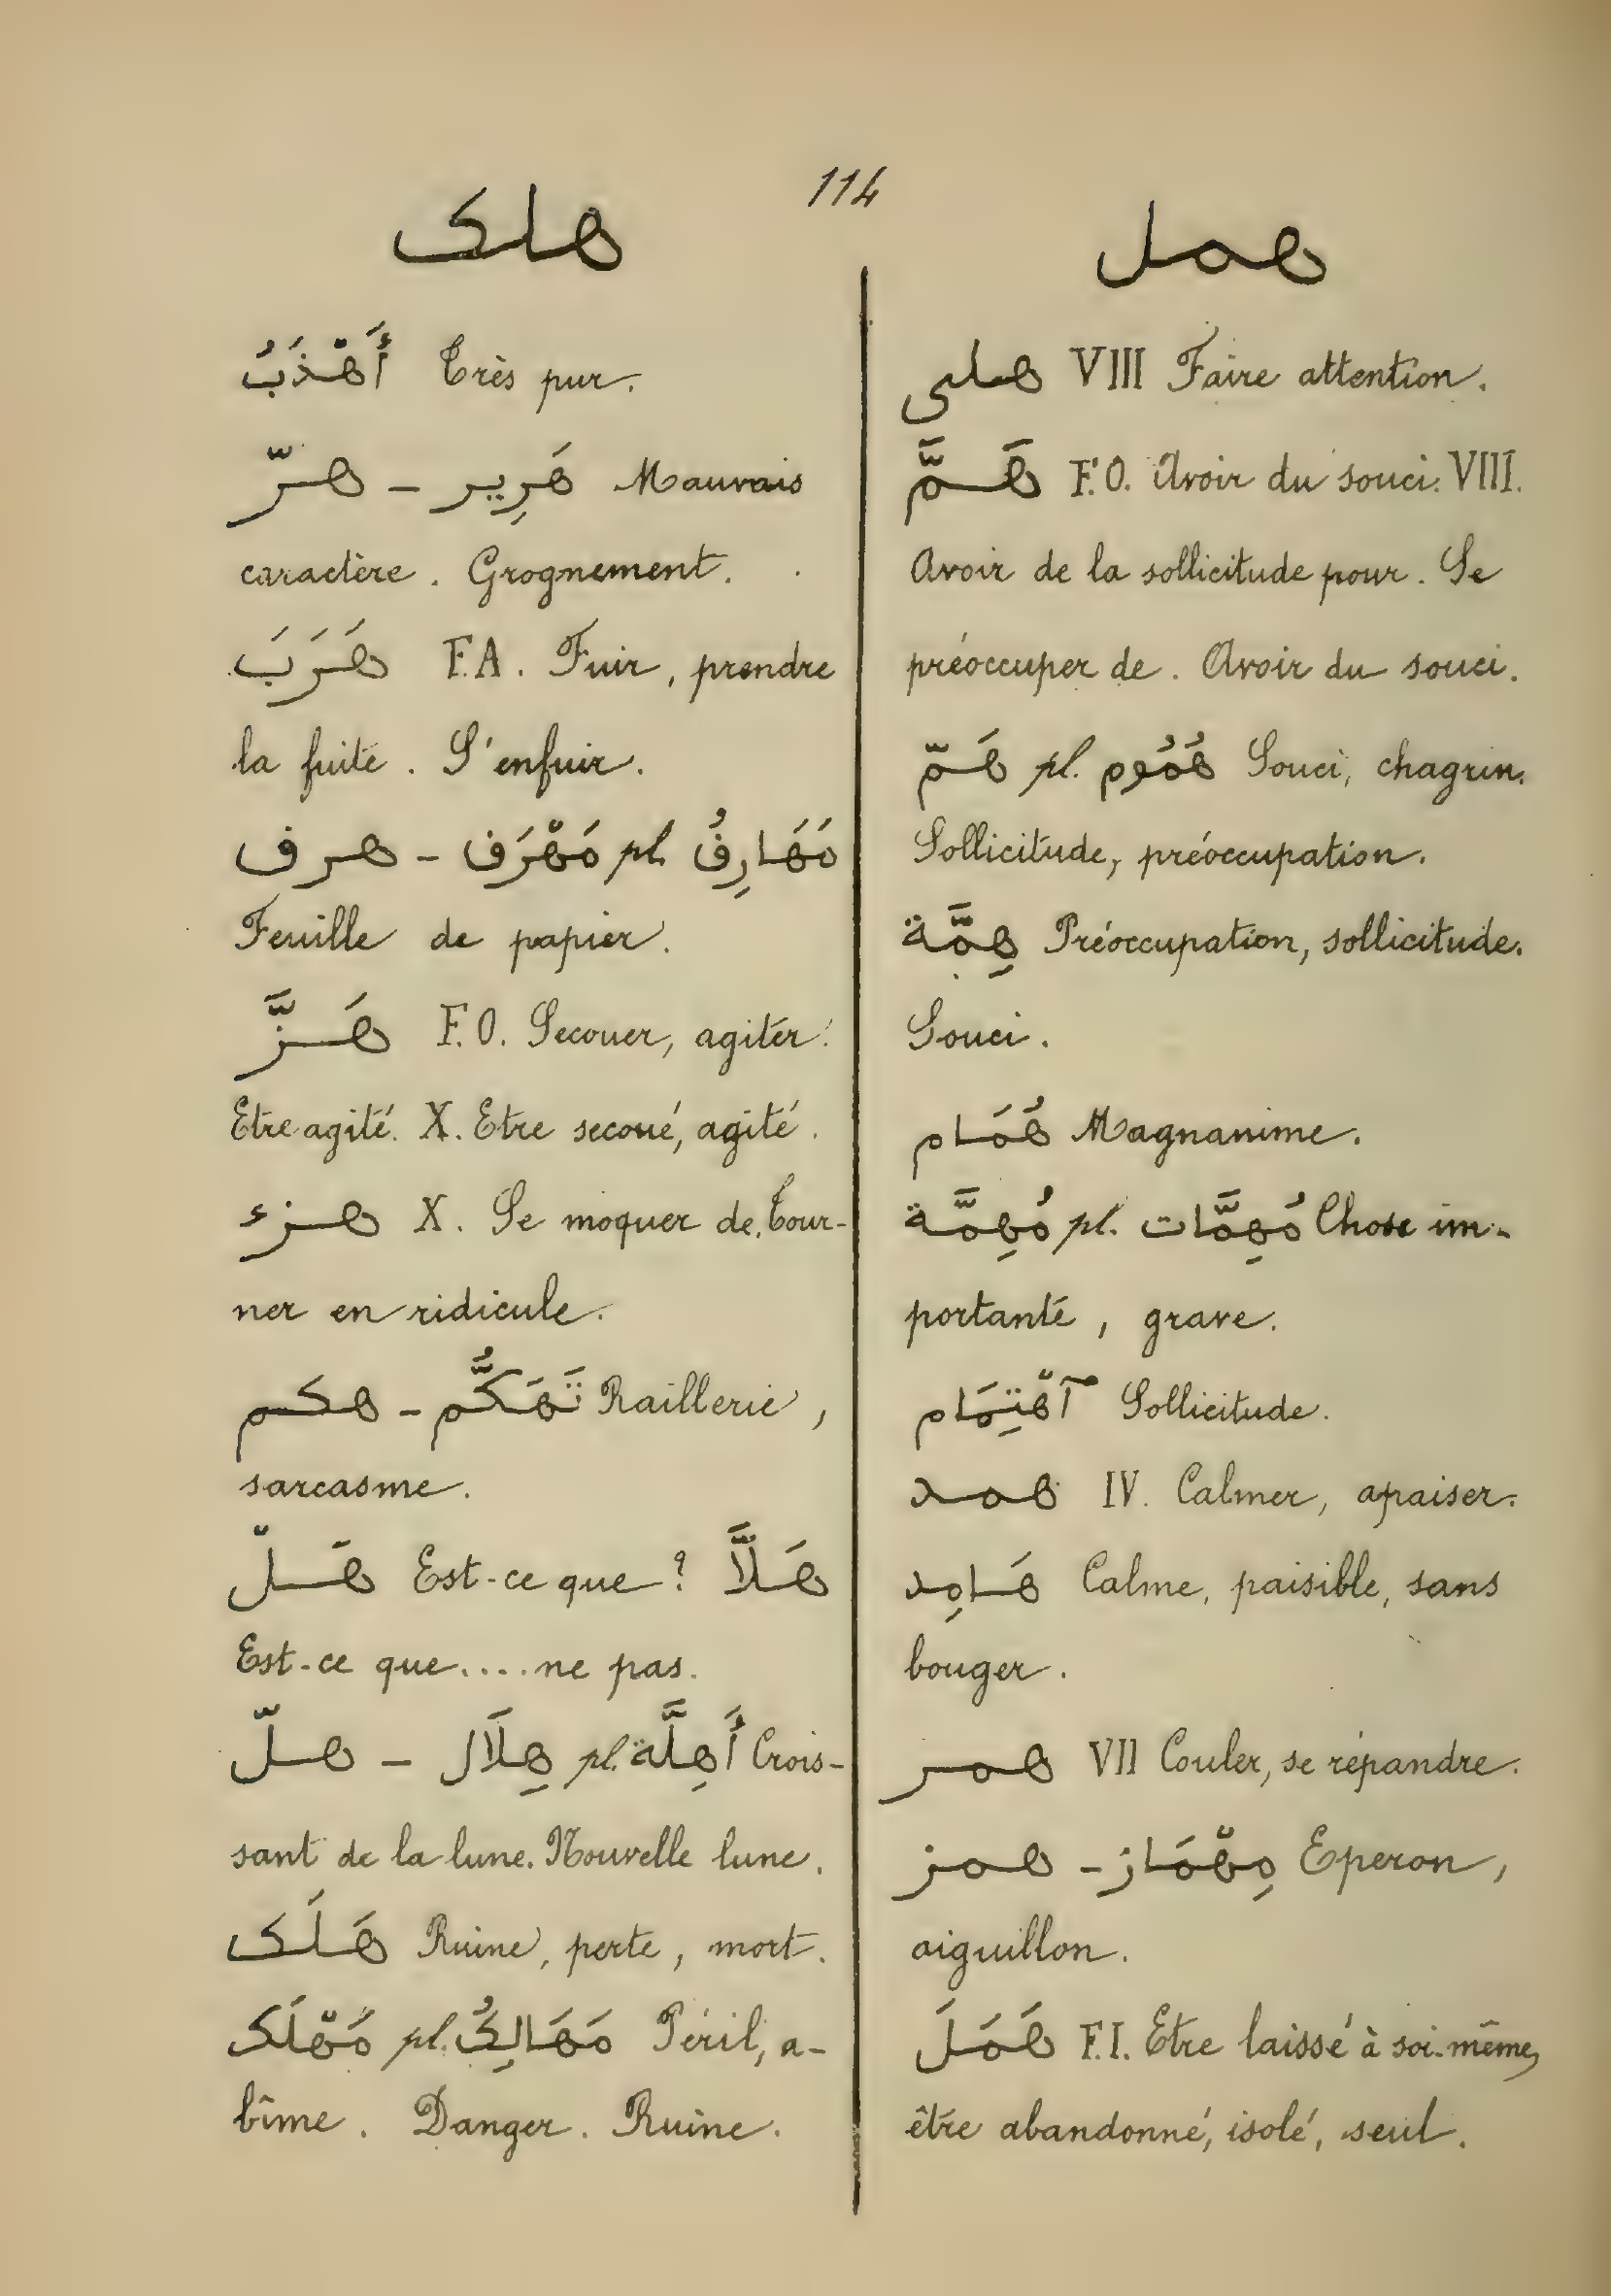 114
هلك
أَهْذَبُ Très pur.
هرّ - هَرِير Mauvais
caractère. Grognement.
هَرَبَ F.A. Fuir, prendre
la fuite. S'enfuir.
هرف - مَهْرَف pl. مَهَارِفُ
Feuille de papier.
هَزَّ F.O. Secouer, agiter.
Etre agité. X. Etre secoué, agité.
هزء X. Se moquer de. Tour-
ner en ridicule.
هكم - تَهَكُّم Raillerie,
sarcasme.
هَلّ Est-ce que? هَلاَّ
Est-ce que.... ne pas.
هلّ - هِلَال pl. أَهِلَّة Crois-
sant de la lune. Nouvelle lune.
هَلَك Ruine, perte, mort.
مَهْلَك pl. مَهَالِكُ Péril, a-
bîme. Danger. Ruine.
همل
هلى VIII Faire attention.
هَمَّ F.O. Avoir du souci. VIII.
Avoir de la sollicitude pour. Se
préoccuper de. Avoir du souci.
هَمّ pl. هُمُوم Souci, chagrin.
Sollicitude, préoccupation.
هِمَّة Préoccupation, sollicitude.
Souci.
هُمَام Magnanime.
مُهِمَّة pl. مُهِمَّات Chose im-
portante, grave.
ٱهْتِمَام Sollicitude.
همد IV. Calmer, apaiser.
هَامِد Calme, paisible, sans
bouger.
همر VII Couler, se répandre.
همز - مِهْمَاز Eperon,
aiguillon.
هَمَلَ F.I. Etre laissé à soi-même,
être abandonné, isolé, seul.